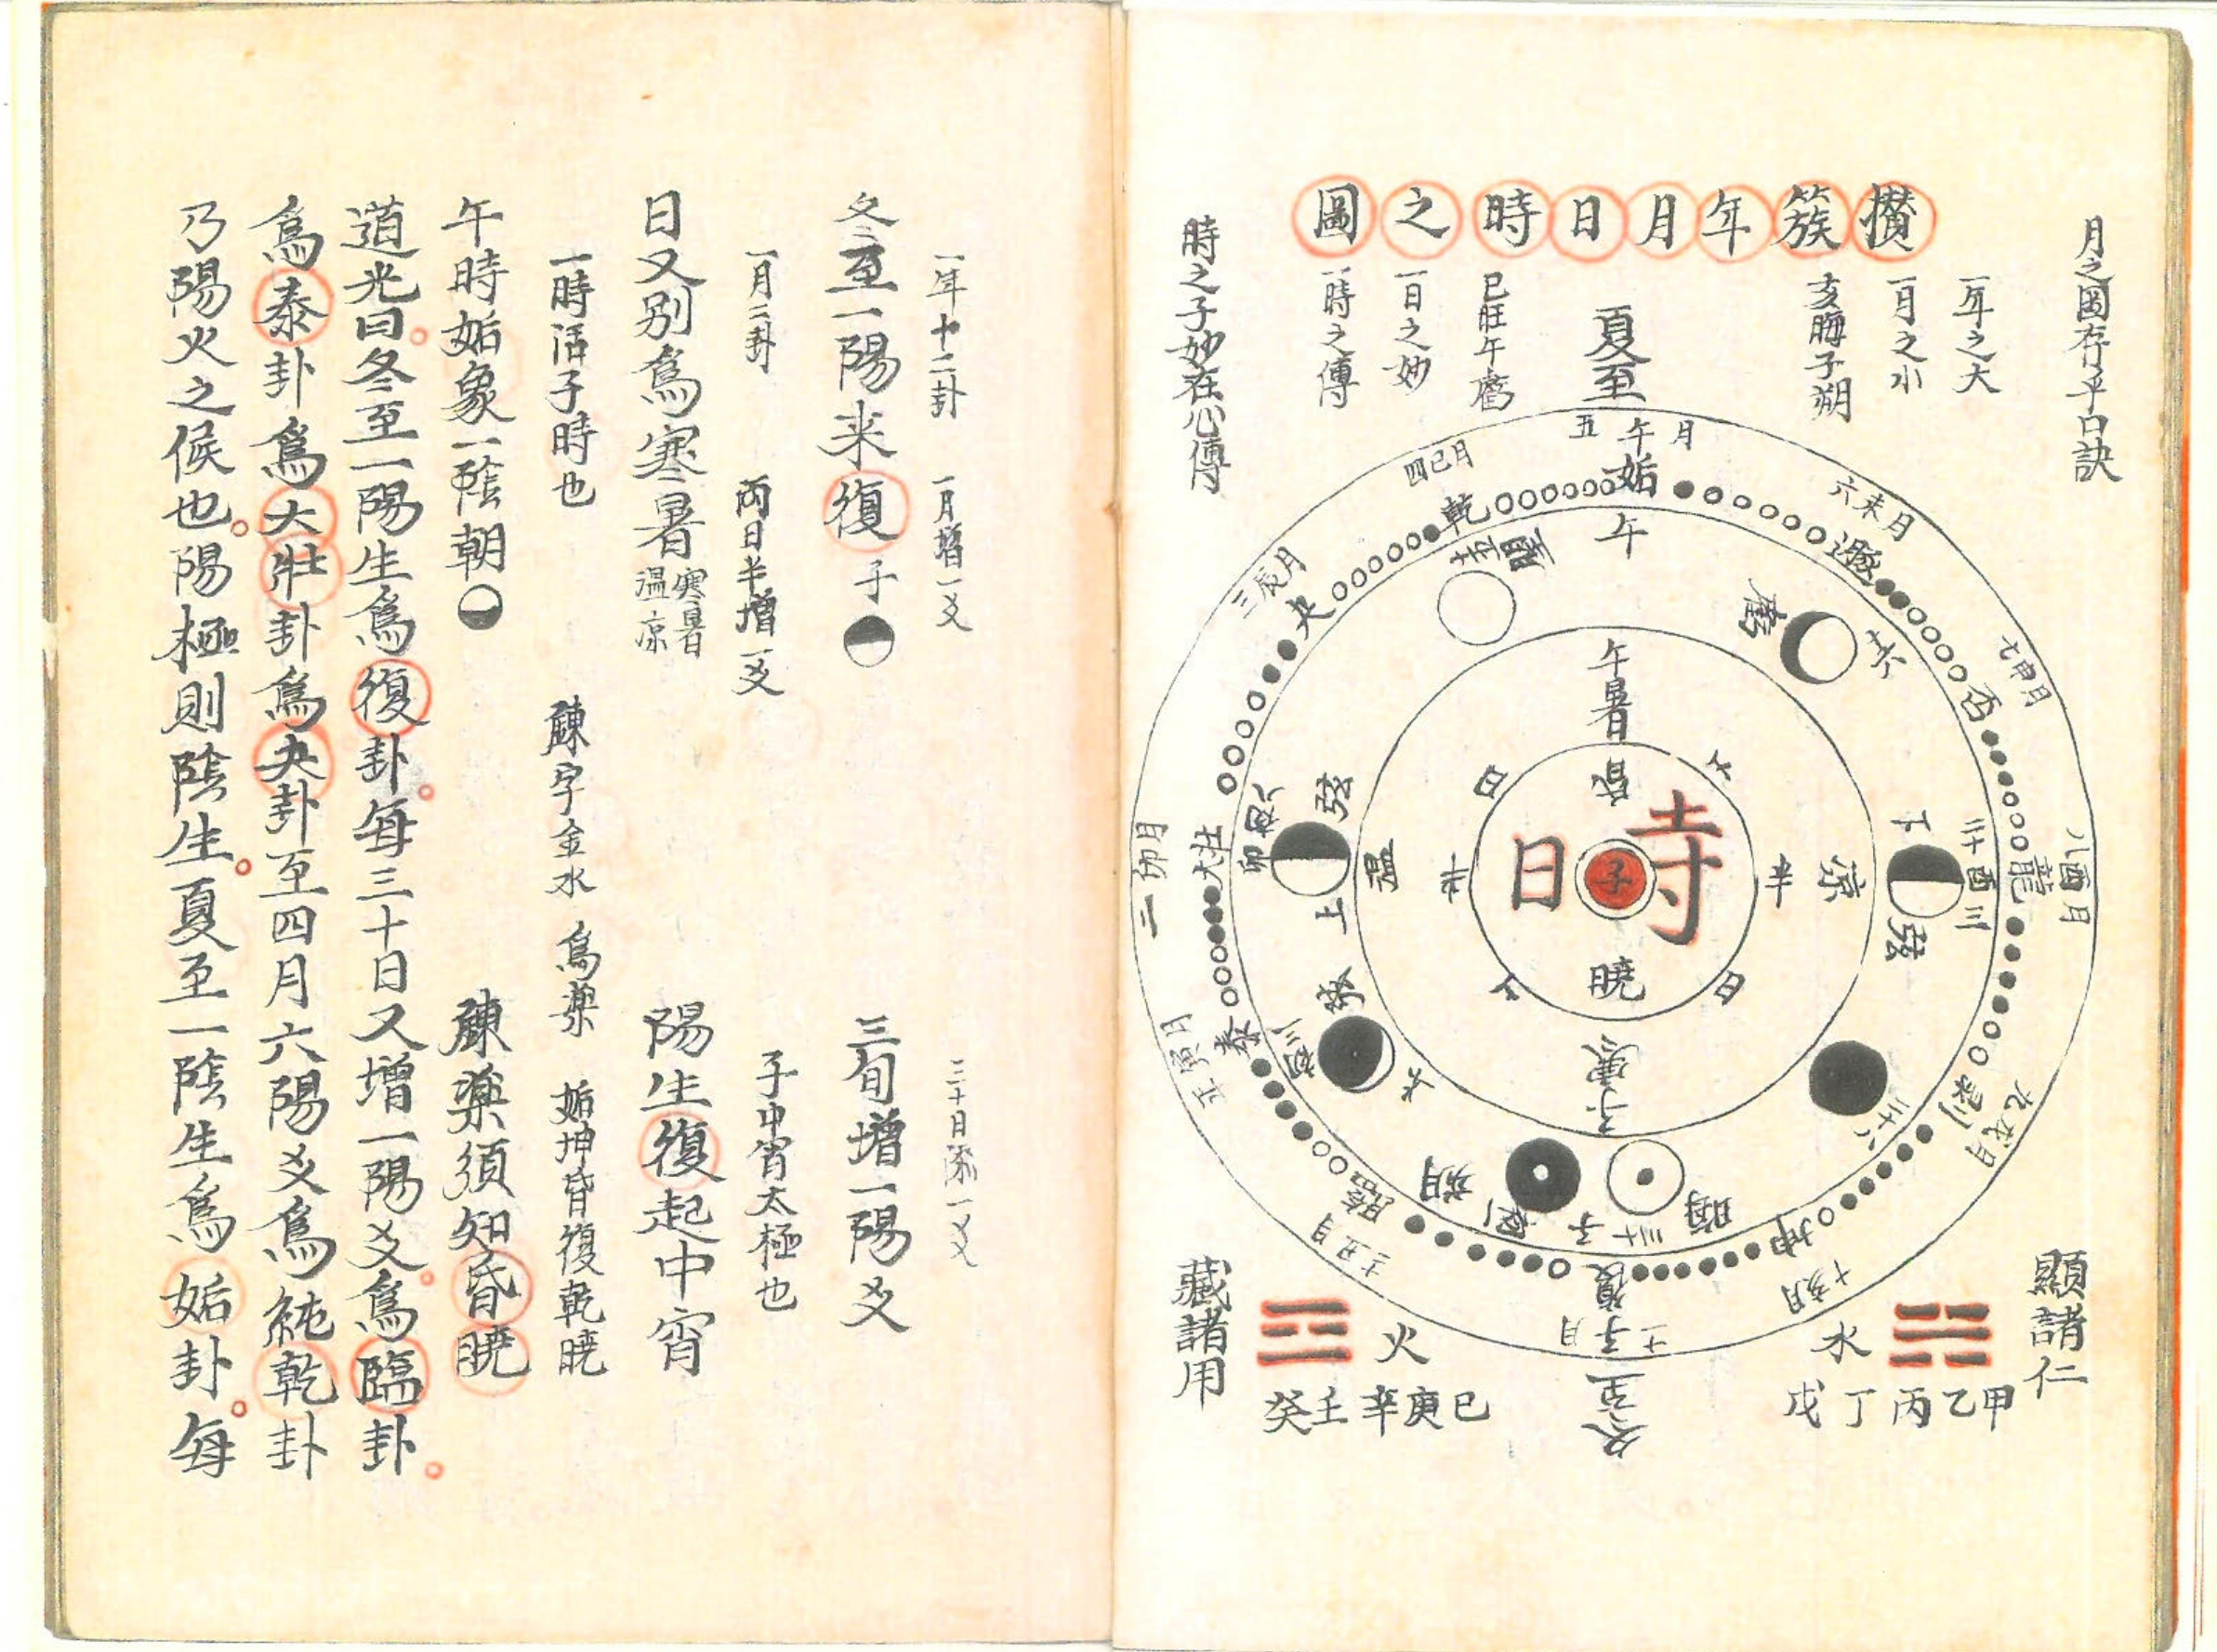 攅簇年月日時之圖
月之圓存乎口訣
一年之大
一月之小
亥晦子朔
夏至
巳旺午
一日之妙
一時之傳
時之子妙在心傳
五午月
六未月
七申月
八酉月
九戌月
十亥月
十一子月
十二丑月
正寅月
二卯月
三辰月
四巳月
姤
遯
否
剥
坤
復
臨
泰
大壯
夬
乾
午
十五
十六
二十三
酉
下
弦
二十八
三十
晦
子
朔
初三
初八
卯
上
弦
午暑
涼
子寒
溫
昏
曉
六日半
六日半
時
子
冬至
顯諸仁
水
甲乙丙丁戊
藏諸用
火
己庚辛壬癸
一年十二卦　一月增一爻　三十日添一爻
冬至一陽来復子　三旬增一陽爻
一月二卦　兩日半增一爻　子中宵太極也
日又別爲寒暑寒暑溫凉　陽生復起中宵
一時活子時也　鍊字金水　爲藥　姤坤昏復乾曉
午時姤象一陰朝　鍊藥須知昏曉
道光曰冬至一陽生爲復卦每三十日又增一陽爻爲臨卦
爲泰卦爲大壯卦爲夬卦至四月六陽爻爲純乾卦
乃陽火之候也陽極則陰生夏至一陰生爲姤卦每